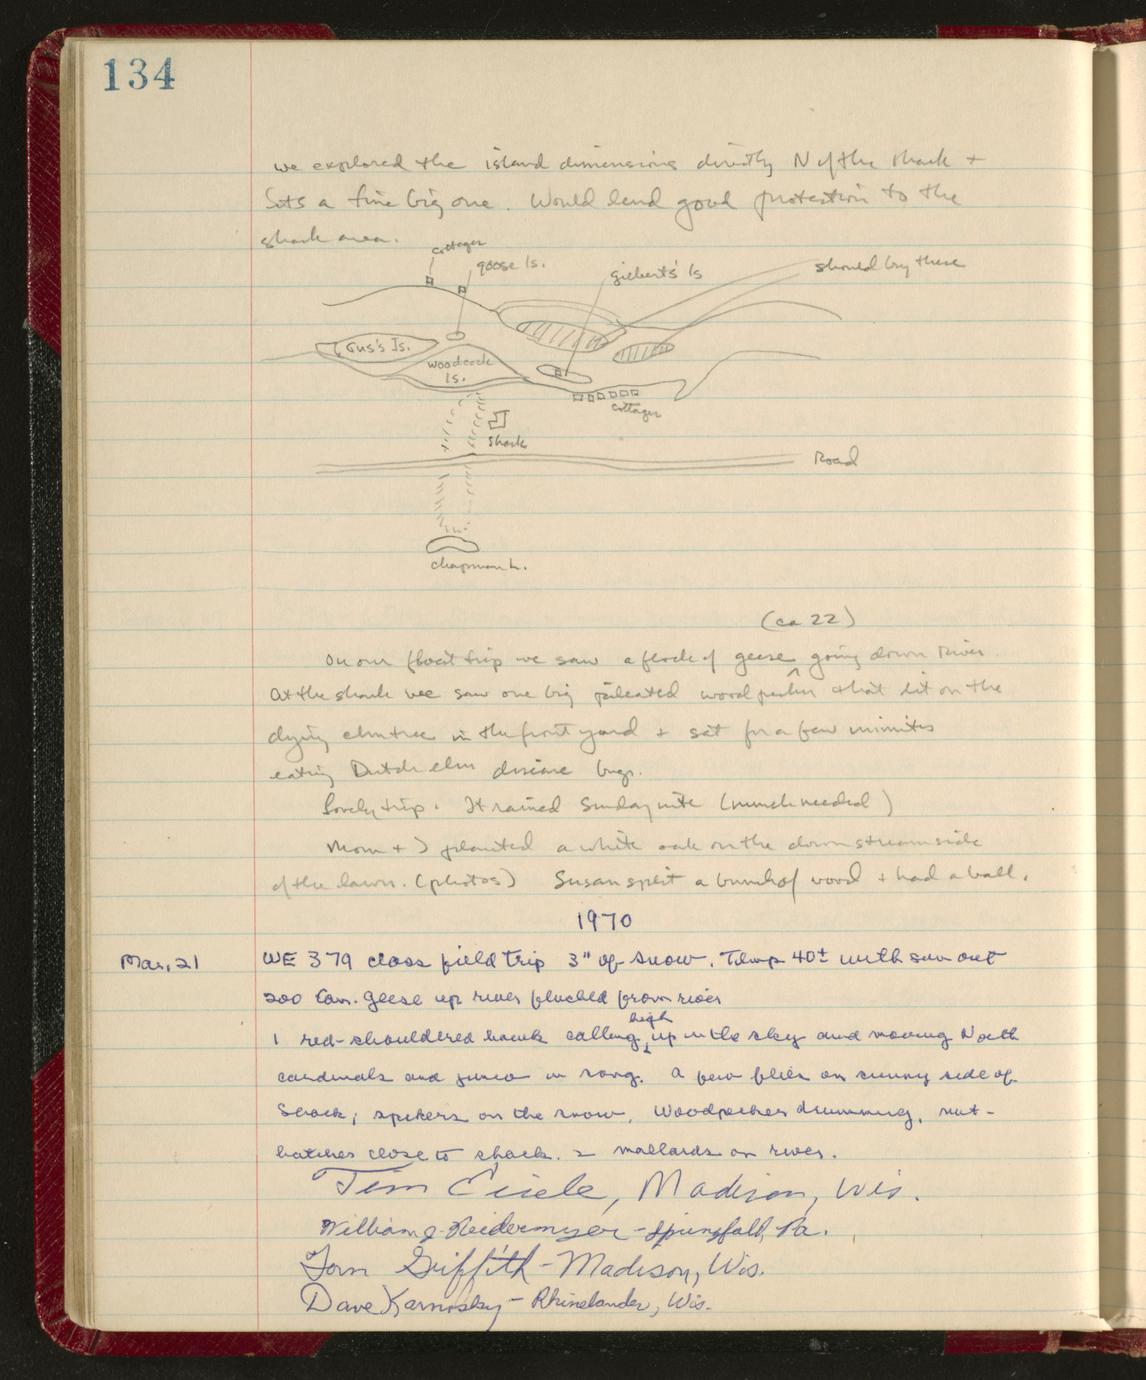 134
we explored the island dimensions directly N of the shack +
its a fine big one. Would lend good protection to the
shack area.
cottages
goose Is.
gilbert's Is
should buy these
Gus's Is.
woodcock
Is.
cottages
shack
Road
chapman L.
(ca 22)
On our float trip we saw a flock of geese ^ going down river.
At the shack we saw one big pileated woodpecker that lit on the
dying elm tree in the front yard + sat for a few minutes
eating Dutch elm disease bugs.
Lovely trip. It rained Sunday nite (much needed)
Mom + I planted a white oak on the downstream side
of the lawn. (photos) Susan split a bunch of wood + had a ball.
1970
Mar. 21
WE 379 class field trip 3" of snow. Temp 40± with sun out
200 Can. geese up river flushed from river
high
1 red-shouldered hawk calling ^ up in the sky and moving North
cardinals and junco in song. A few flies on sunny side of
Shack; spiders on the snow. Woodpecker drumming, nut-
hatches close to shack. 2 mallards on river.
Tim Eisele, Madison, Wis.
William J. Neidermyer - Springfield, Pa.
Tom Griffith - Madison, Wis.
Dave Karnosky - Rhinelander, Wis.